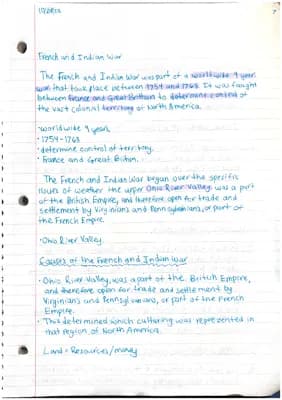 French and Indian War
The French and Indian War was part of a worldwide 9 years
war that took place between 1754 and 1763. It was fought
between France and Great Britain to determine control of
the vast colonial territory of North America.
·worldwide 9 years
·1754-1763
·determine control of territory.
·France and Great Britain.
The French and Indian War began over the specific
issue of weather the upper Ohio River Valley was a part
of the British Empire, and therefore open for trade and
settlement by Virginians and Pennsylvanians, or part of
the French Empire
·Ohio River Valley
Causes of the French and Indian War
·Ohio River Valley, was a part of the British Empire,
and therefore open for trade and settlement by
Virginians and Pennsylvanians, or part of the French
Empire.
·This determined which culturing was represented in
that region of North America.
Land = Resources/money